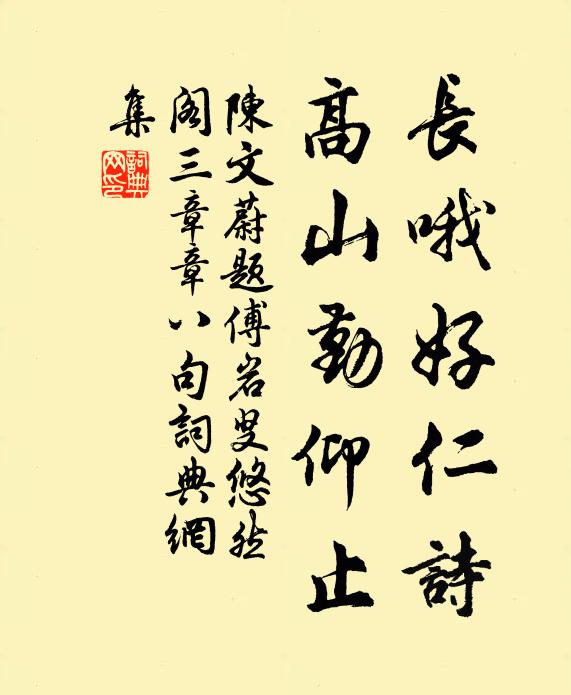 長哦好仁詩
高山勤仰止
陳文蔚題傅岩叟悠然
阁三章章八句詞典網
集
詞典网印